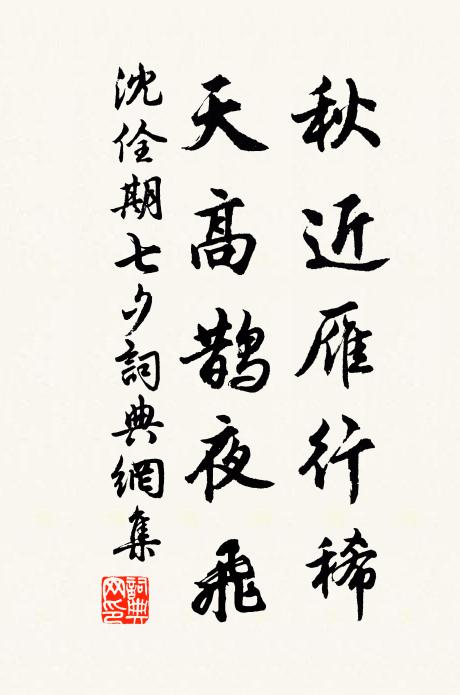 秋近雁行稀
天高鵲夜飛
沈佺期七夕詞典網集
詞典網印